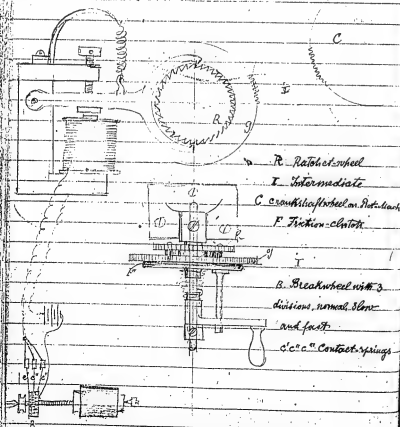 C
I
R
g
R Ratchet-wheel
I Intermediate
C crankshaftwheel on Slot-Mach
F Friction-clutch
R
g
F
I
B Breakwheel with 3
divisions, normal, slow
and fast
c' c" c''' Contact-springs
c' c" c'''
B